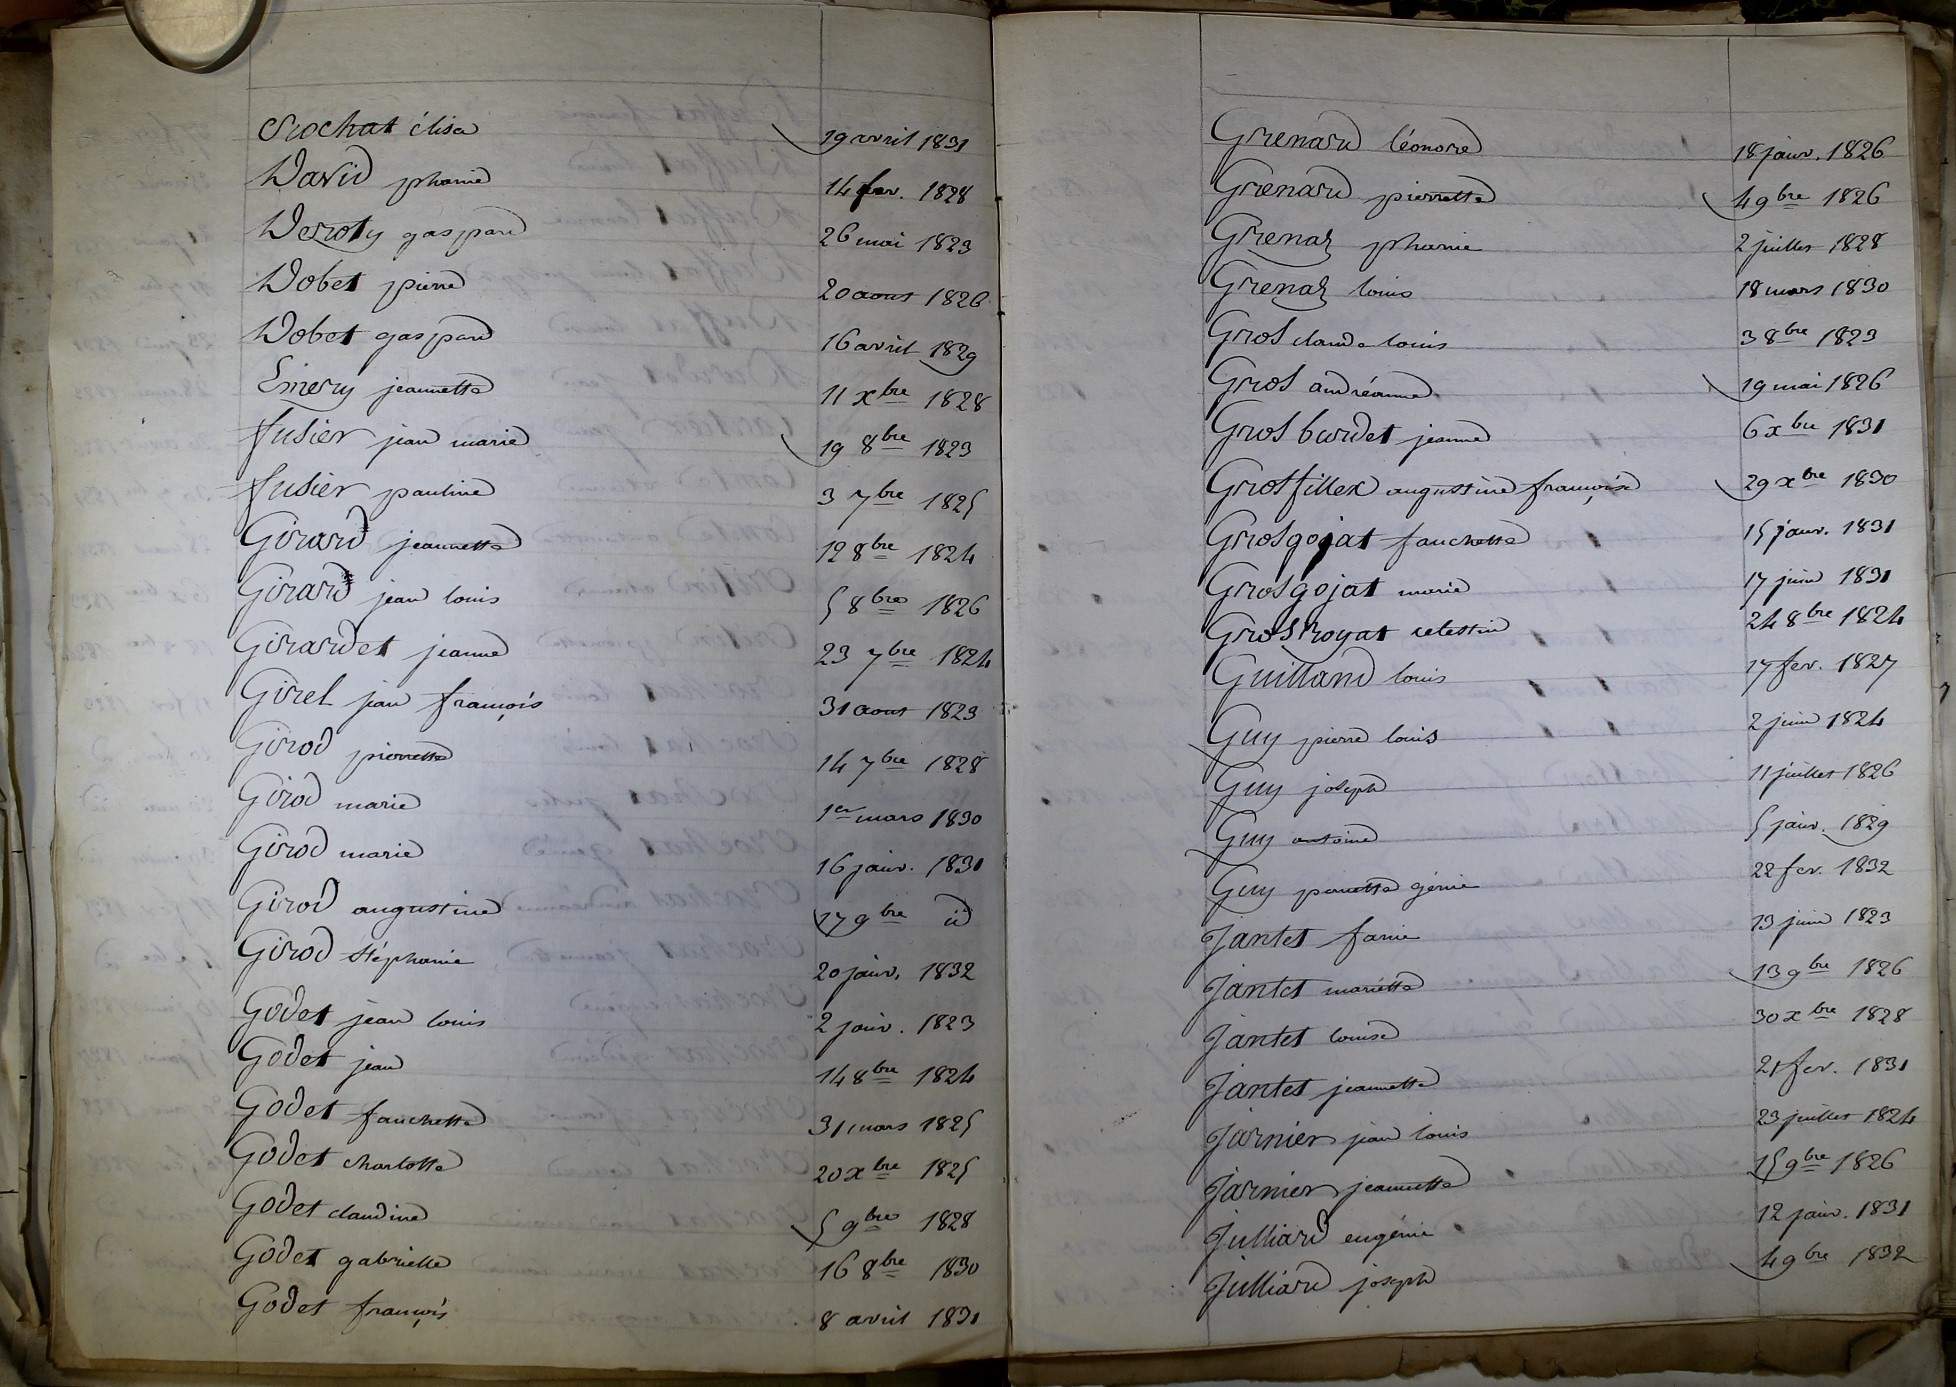 Crochat élisa 19 avril 1831
David phanie 14 fev. 1828
Deroty gaspard 26 mai 1823
Dobet pierre 20 aout 1826
Dobet gaspard 16 avril 1829
Emery jeannette 11 xbre 1828
fusier jean marie 19 8bre 1823
fusier pauline 3 7bre 1825
Girard jeannette 12 8bre 1824
Girard jean louis 5 8bre 1826
Girardet jeanne 23 7bre 1824
Girel jean françois 31 aout 1823
Girod pierrette 14 7bre 1828
Girod marie 1er mars 1830
Girod marie 16 janv. 1831
Girod augustine 17 9bre id
Girod stéphanie 20 janv. 1832
Godet jean louis 2 janv. 1823
Godet jean 14 8bre 1824
Godet fanchette 31 mars 1825
Godet charlotte 20 xbre 1825
Godet claudine 5 9bre 1828
Godet gabrielle 16 8bre 1830
Godet françois 8 avril 1831
Grenard léonore 18 janv. 1826
Grenard pierrette 4 9bre 1826
Grenaz phanie 2 juillet 1828
Grenaz louis 18 mars 1830
Gros claude louis 3 8bre 1823
Gros andréanne 19 mai 1826
Gros burdet jeanne 6 xbre 1831
Grosfillex augustine françoise 29 xbre 1830
Grosgojat fanchette 15 janv. 1831
Grosgojat marie 17 juin 1831
Grosroyat celestin 24 8bre 1824
Guilland louis 17 fev. 1827
Guy pierre louis 2 juin 1824
Guy joseph 11 juillet 1826
Guy antoine 5 janv. 1829
Guy pernette génie 22 fev. 1832
Jantet fanie 13 juin 1823
Jantet mariette 13 9bre 1826
Jantet louise 30 xbre 1828
Jantet jeannette 21 fev. 1831
Jarnier jean louis 23 juillet 1824
Jarnier jeannette 15 9bre 1826
Julliard eugénie 12 janv. 1831
Julliard joseph 4 9bre 1832